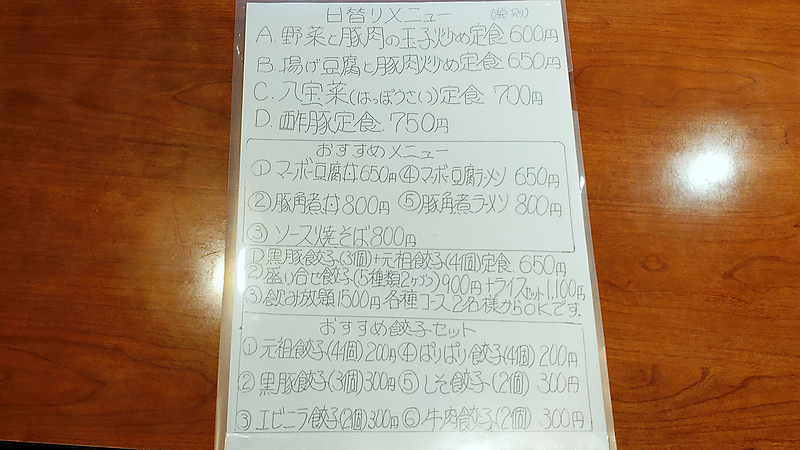 日替りメニュー (税別)
A. 野菜と豚肉の玉子炒め定食 600円
B. 揚げ豆腐と豚肉炒め定食 650円
C. 八宝菜(はっぽうさい)定食 700円
D. 酢豚定食 750円
おすすめメニュー
① マーボー豆腐付650円 ④ マーボ豆腐ラーメン 650円
② 豚角煮付 800円 ⑤ 豚角煮ラーメン 800円
③ ソース焼そば800円
① 黒豚餃子(3個)+元祖餃子(4個)定食 650円
② 盛り合せ餃子(5種類2ケヅツ)900円 +ライスセット 1,100円
③ 飲み放題1500円 各種コース2名様からOKです.
おすすめ餃子セット
① 元祖餃子(4個)200円 ④ ぱりぱり餃子(4個) 200円
② 黒豚餃子(3個)300円 ⑤ しそ餃子(2個) 300円
③ エビニラ餃子(2個)300円 ⑥ 牛肉餃子(2個) 300円